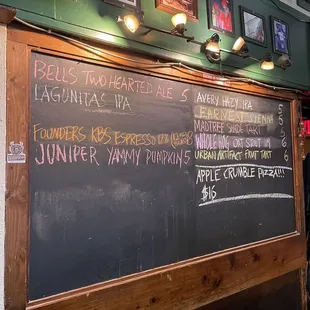 Bell's Two Hearted Ale 5
Lagunitas IPA
Founders KBS Espresso
Juniper Yammy Pumpkin 5
Avery Hazy IPA 5
Earnest
Madtree 5
Whole Hog Oat Stout 6
Urban Artifact Fruit Tart 6
Apple Crumble Pizza!!!
$16